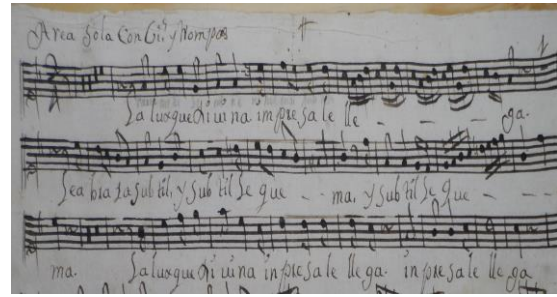 Area Sola Con Vi.s y Trompas
la luz que divina impresa le lle - - - ga.
Se abraza subtil, y subtil se que - - ma, y subtil se que - - -
ma. la luz que divina impresa le llega. impresa le llega